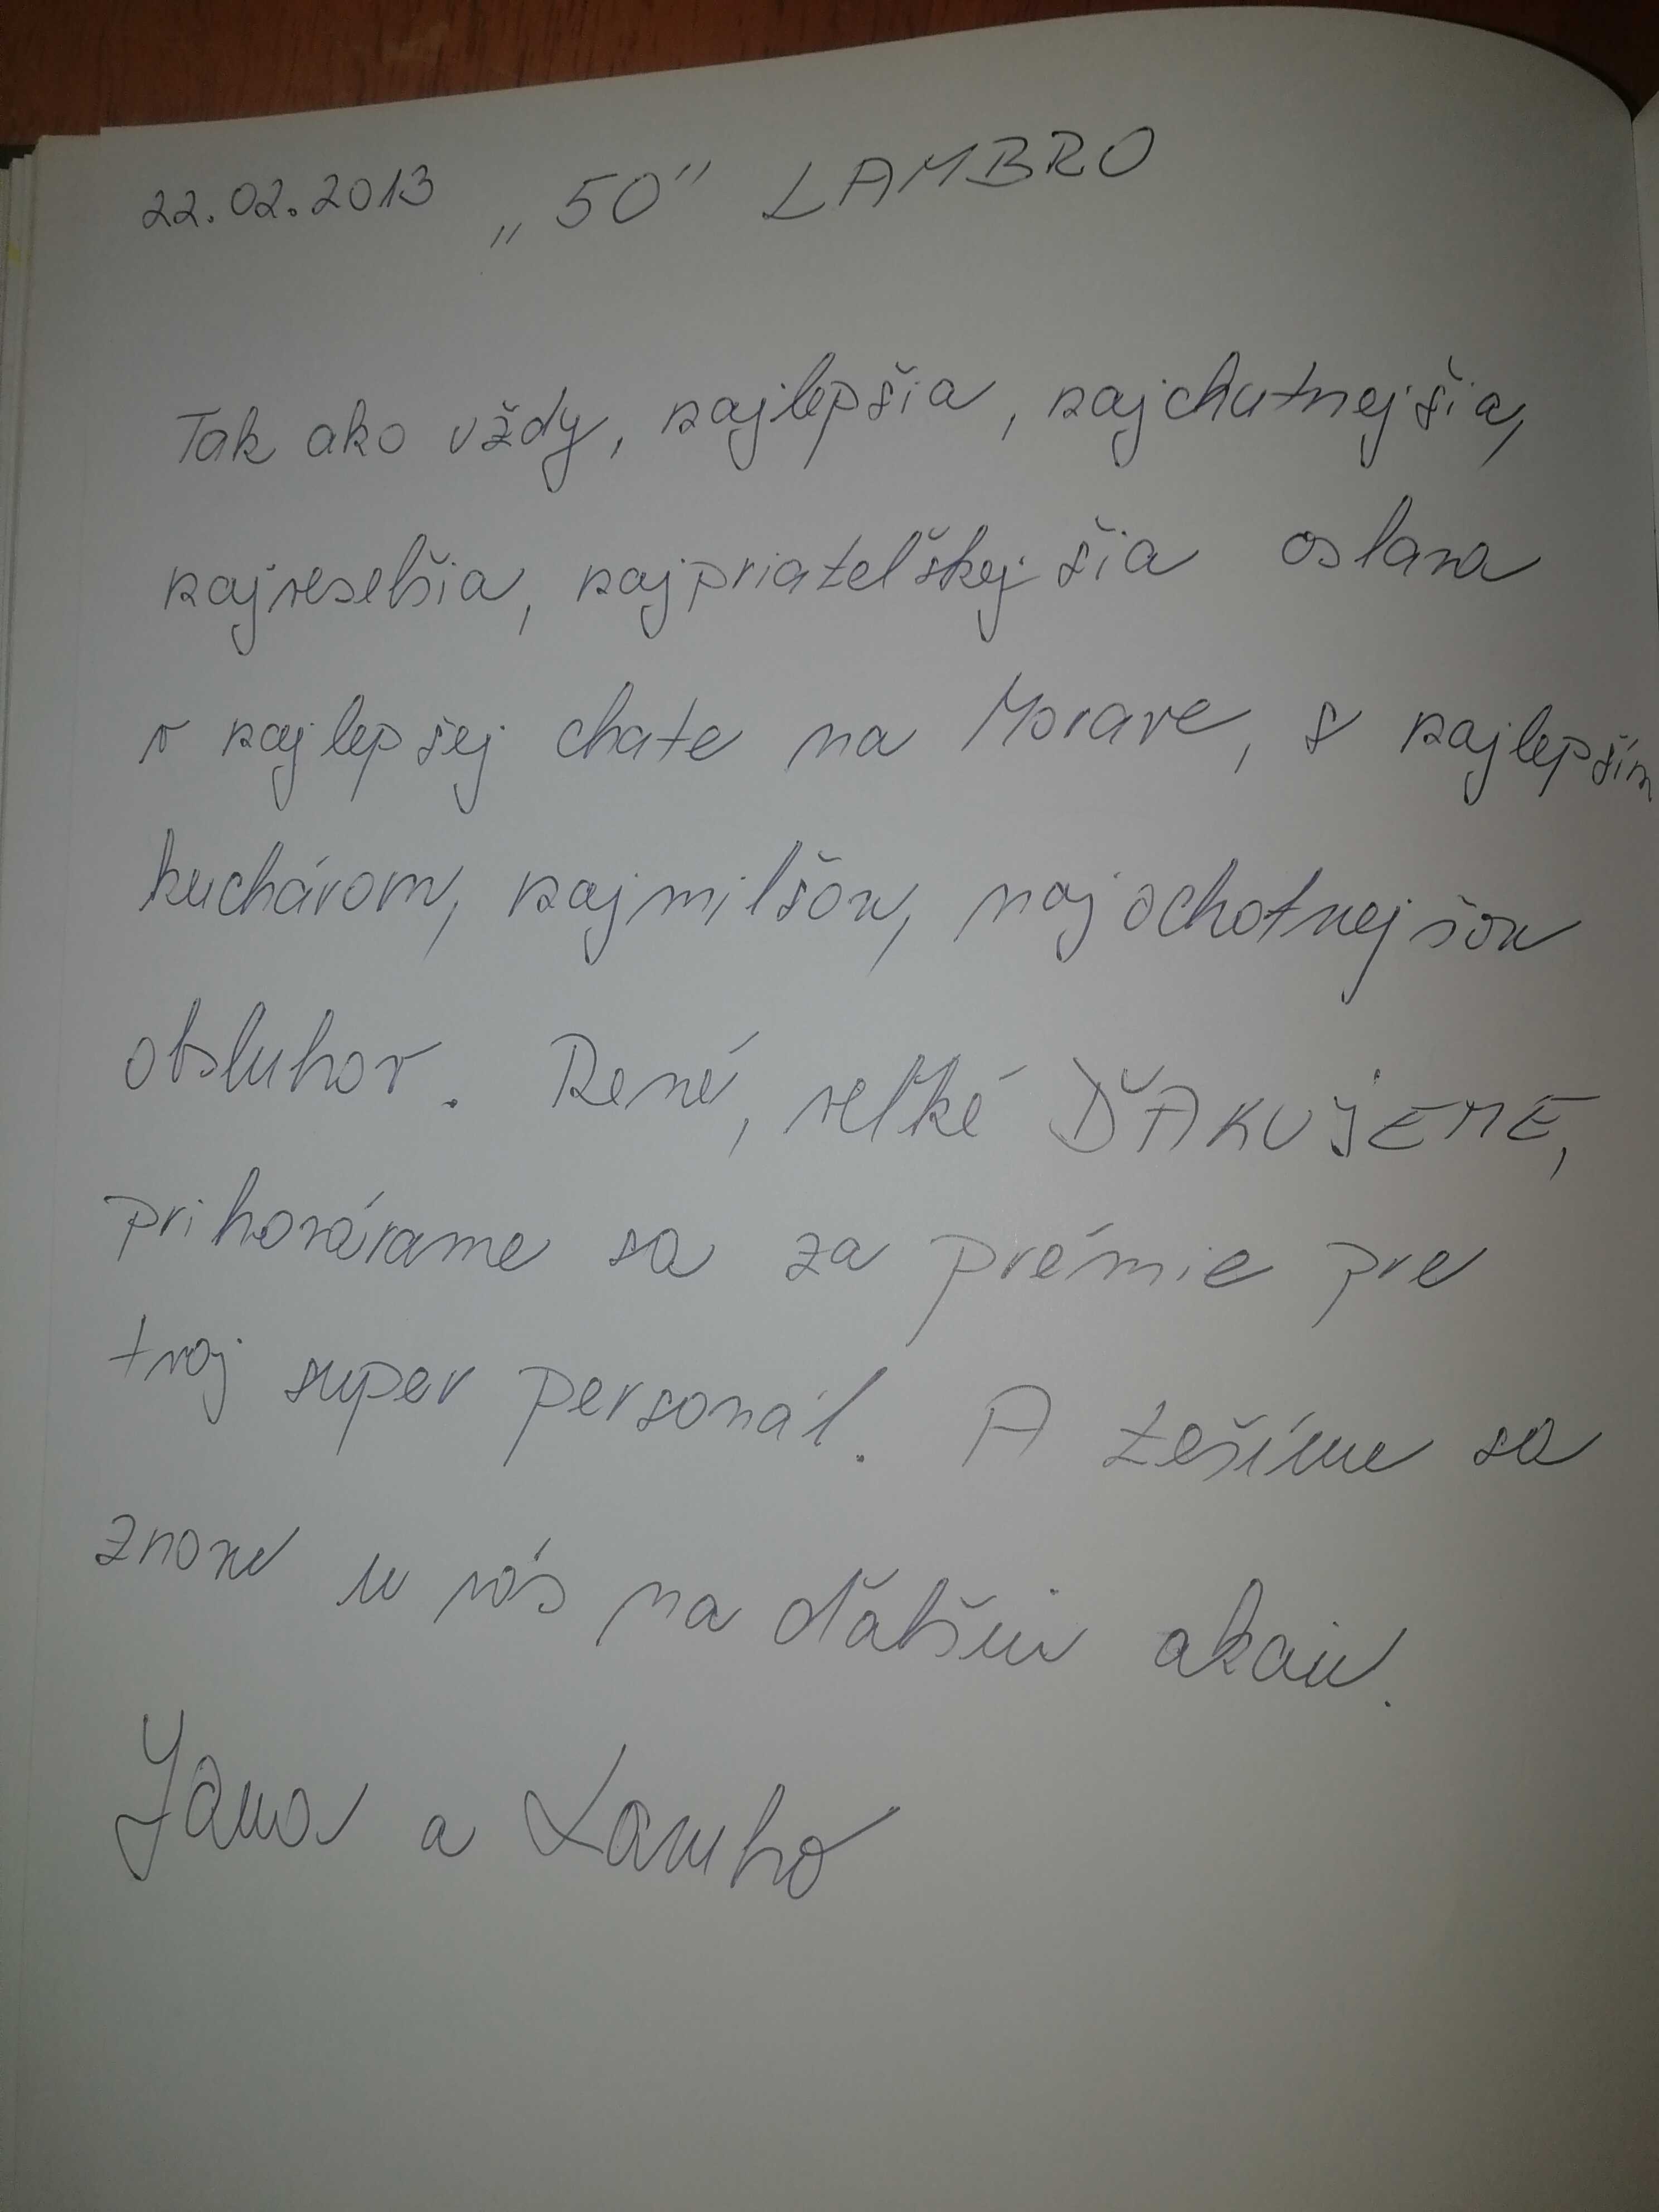 22.02.2013 „50" LAMBRO
Tak ako vždy, najlepšia, najchutnejšia,
najveselšia, najpriateľškejšia oslava
v najlepšej chate na Morave, s najlepším
kuchárom, najmilšou, najochotnejšou
obsluhov. René, veľké ĎAKUJEME,
prihovárame sa za prémie pre
tvoj super personál. A tešíme sa
znovu u vás na ďalšiu akciu.
Jana a Lambro